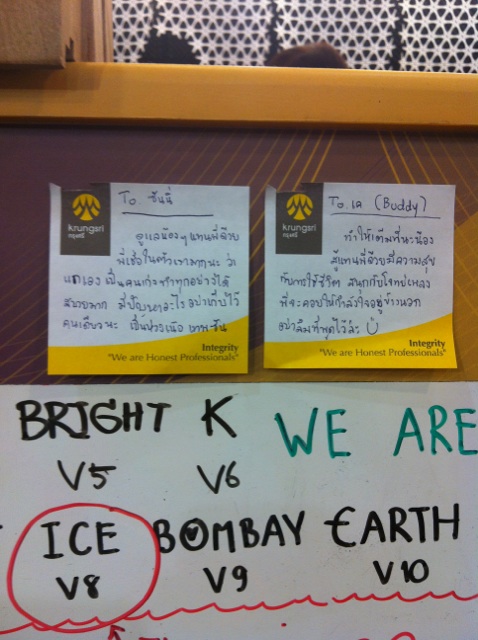 krungsri
กรุงศรี
To ซันนี่
ดูแลน้องๆ แทนพี่ด้วย
พี่เชื่อในตัวเรามากนะ ว่า
แกเอง เป็นคนเก่ง ทำทุกอย่างได้
สบายมาก มีปัญหาอะไร อย่าเก็บไว้
คนเดียวนะ
Integrity
"We are Honest Professionals"
krungsri
กรุงศรี
To. เค (Buddy)
ทำให้เต็มที่นะน้อง
สู้แทนพี่ด้วย มีความสุข
กับการใช้ชีวิต สนุกกับโจทย์เพลง
พี่จะคอยให้กำลังใจอยู่ข้างนอก
อย่าลืมที่พูดไว้ล่ะ
Integrity
"We are Honest Professionals"
BRIGHT K WE ARE
V5 V6
ICE BOMBAY EARTH
V8 V9 V10